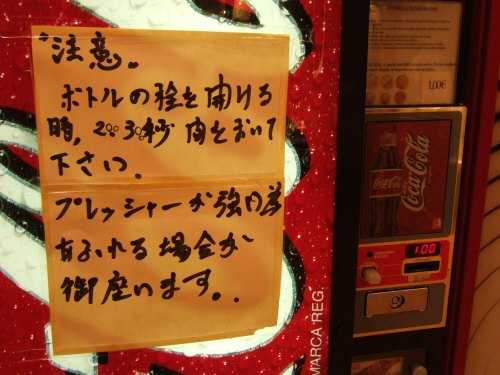 注意。
ボトルの栓を開ける
時、20〜30秒間をおいて
下さい。
プレッシャーが強い為
あふれる場合が
御座います。.
1,00€
Coca-Cola
Coca-Cola
1.00
MARCA REG.